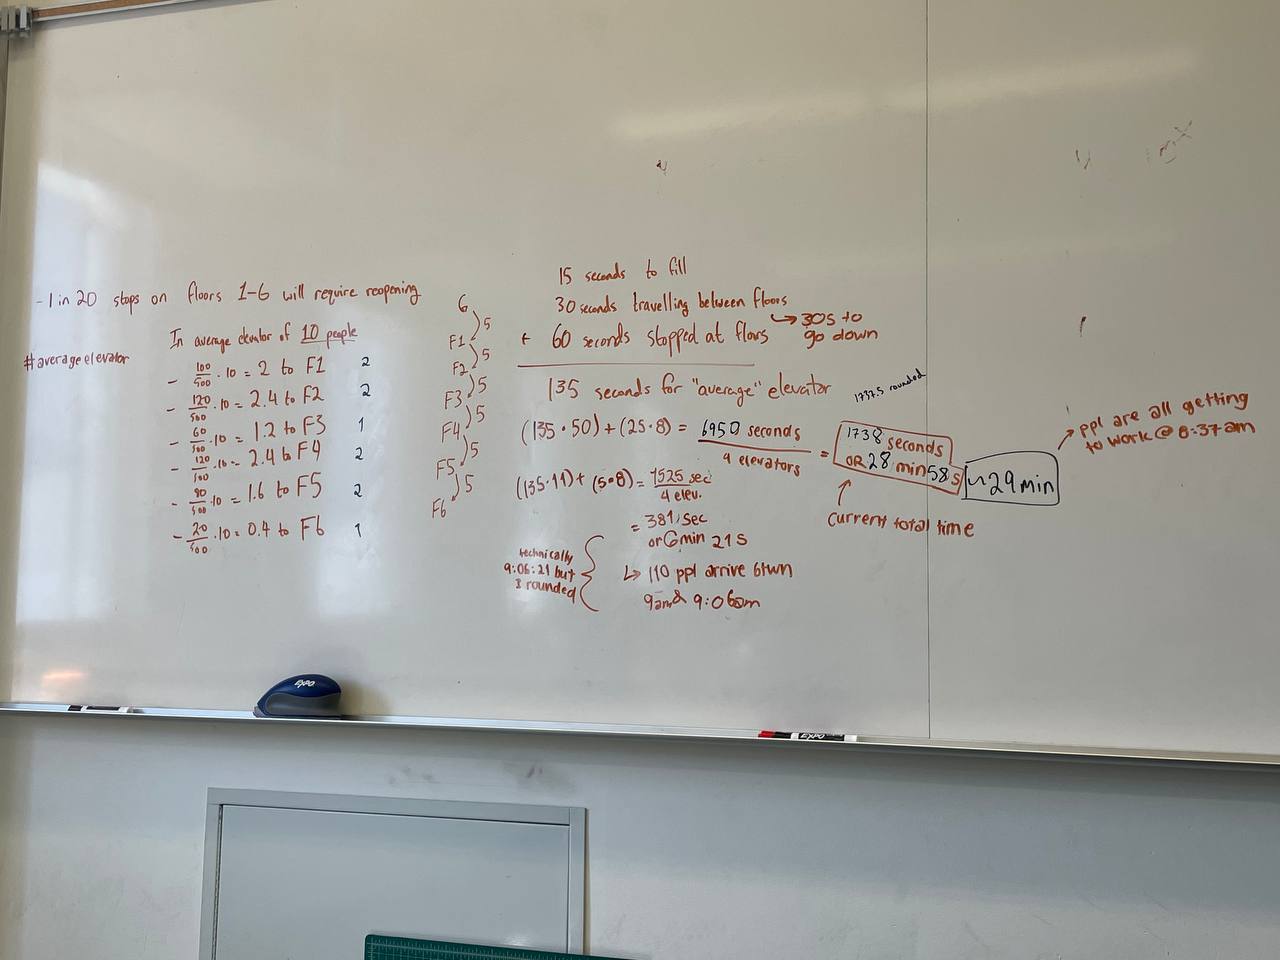 - 1 in 20 stops on floors 1-6 will require reopening
In average elevator of 10 people
#average elevator
- 100/500 · 10 = 2 to F1 2
- 120/500 · 10 = 2.4 to F2 2
- 60/500 · 10 = 1.2 to F3 1
- 120/500 · 10 = 2.4 to F4 2
- 80/500 · 10 = 1.6 to F5 2
- 20/500 · 10 = 0.4 to F6 1
G
5
F1
5
F2
5
F3
5
F4
5
F5
5
F6
15 seconds to fill
30 seconds travelling between floors
↳ 30s to
go down
+ 60 seconds stopped at floors
135 seconds for "average" elevator
1737.5 rounded
(135 · 50) + (25 · 8) = 6950 seconds / 4 elevators = 1738 seconds
OR 28 min 58 s
~29 min
→ ppl are all getting
to work @ 8:37am
Current total time
(135·11) + (5·8) = 1525 sec / 4 elev.
= 381 sec
or 6 min 21 s
↳ 110 ppl arrive btwn
9am & 9:06am
technically
9:06:21 but
I rounded
EXPO
EXPO